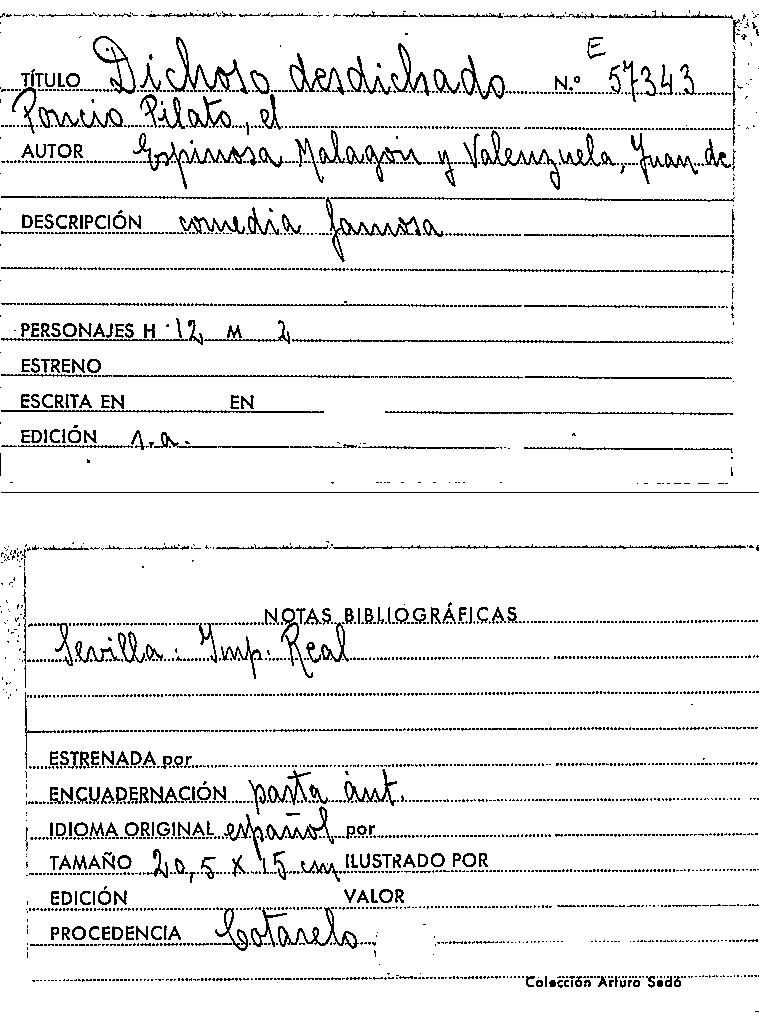 E
TÍTULO Dichoso desdichado N.º 57343
Poncio Pilato, el
AUTOR Espinosa Malagón y Valenzuela, Juan de
DESCRIPCIÓN comedia famosa
PERSONAJES H 12 M 2
ESTRENO
ESCRITA EN EN
EDICIÓN s.a.
NOTAS BIBLIOGRÁFICAS
Sevilla: Imp. Real
ESTRENADA por
ENCUADERNACIÓN pasta ant.
IDIOMA ORIGINAL español por
TAMAÑO 20,5 X 15 cm ILUSTRADO POR
EDICIÓN VALOR
PROCEDENCIA Cotarelo
Colección Arturo Sedó